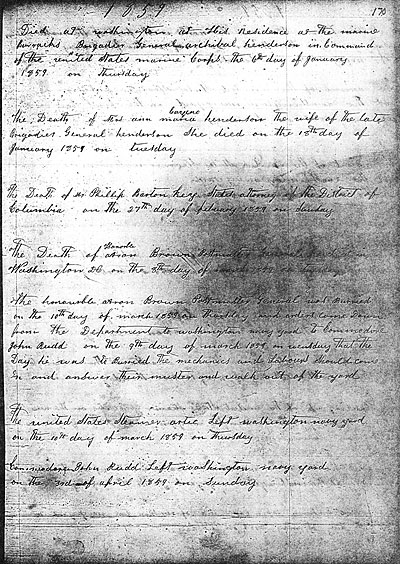 1859
170
Died at washington at His Residence at the marine
Barracks Brigadier General archibal henderson in Command
of the united States marine Corps the 6th day of January
1859 on thursday
Cazene
The Death of Mrs ann maria henderson the wife of the late
Brigadier General henderson She died on the 18th day of
January 1859 on tuesday
the Death of Mr Phillip Barton key States attorney of the District of
Columbia on the 27th day of february 1859 on Sunday
The Death of aron Brown Postmaster General
Washington DC on the 8th day of march 1859 on tuesday
the honorable aron Brown Postmaster General was Buried
on the 10th day of march 1859 on thursday and orders came Down
from the Department to washington navy yard to Commodore
John Rudd on the 9th day of march 1859 on that the
Day he was to Buried the mechanics and Labours Should come
in and answer their muster and walk out of the yard
The united States Steamer artic Left washington navy yard
on the 10th day of march 1859 on thursday
Commodore John Rudd Left washington navy yard
on the 3rd of april 1859 on Sunday